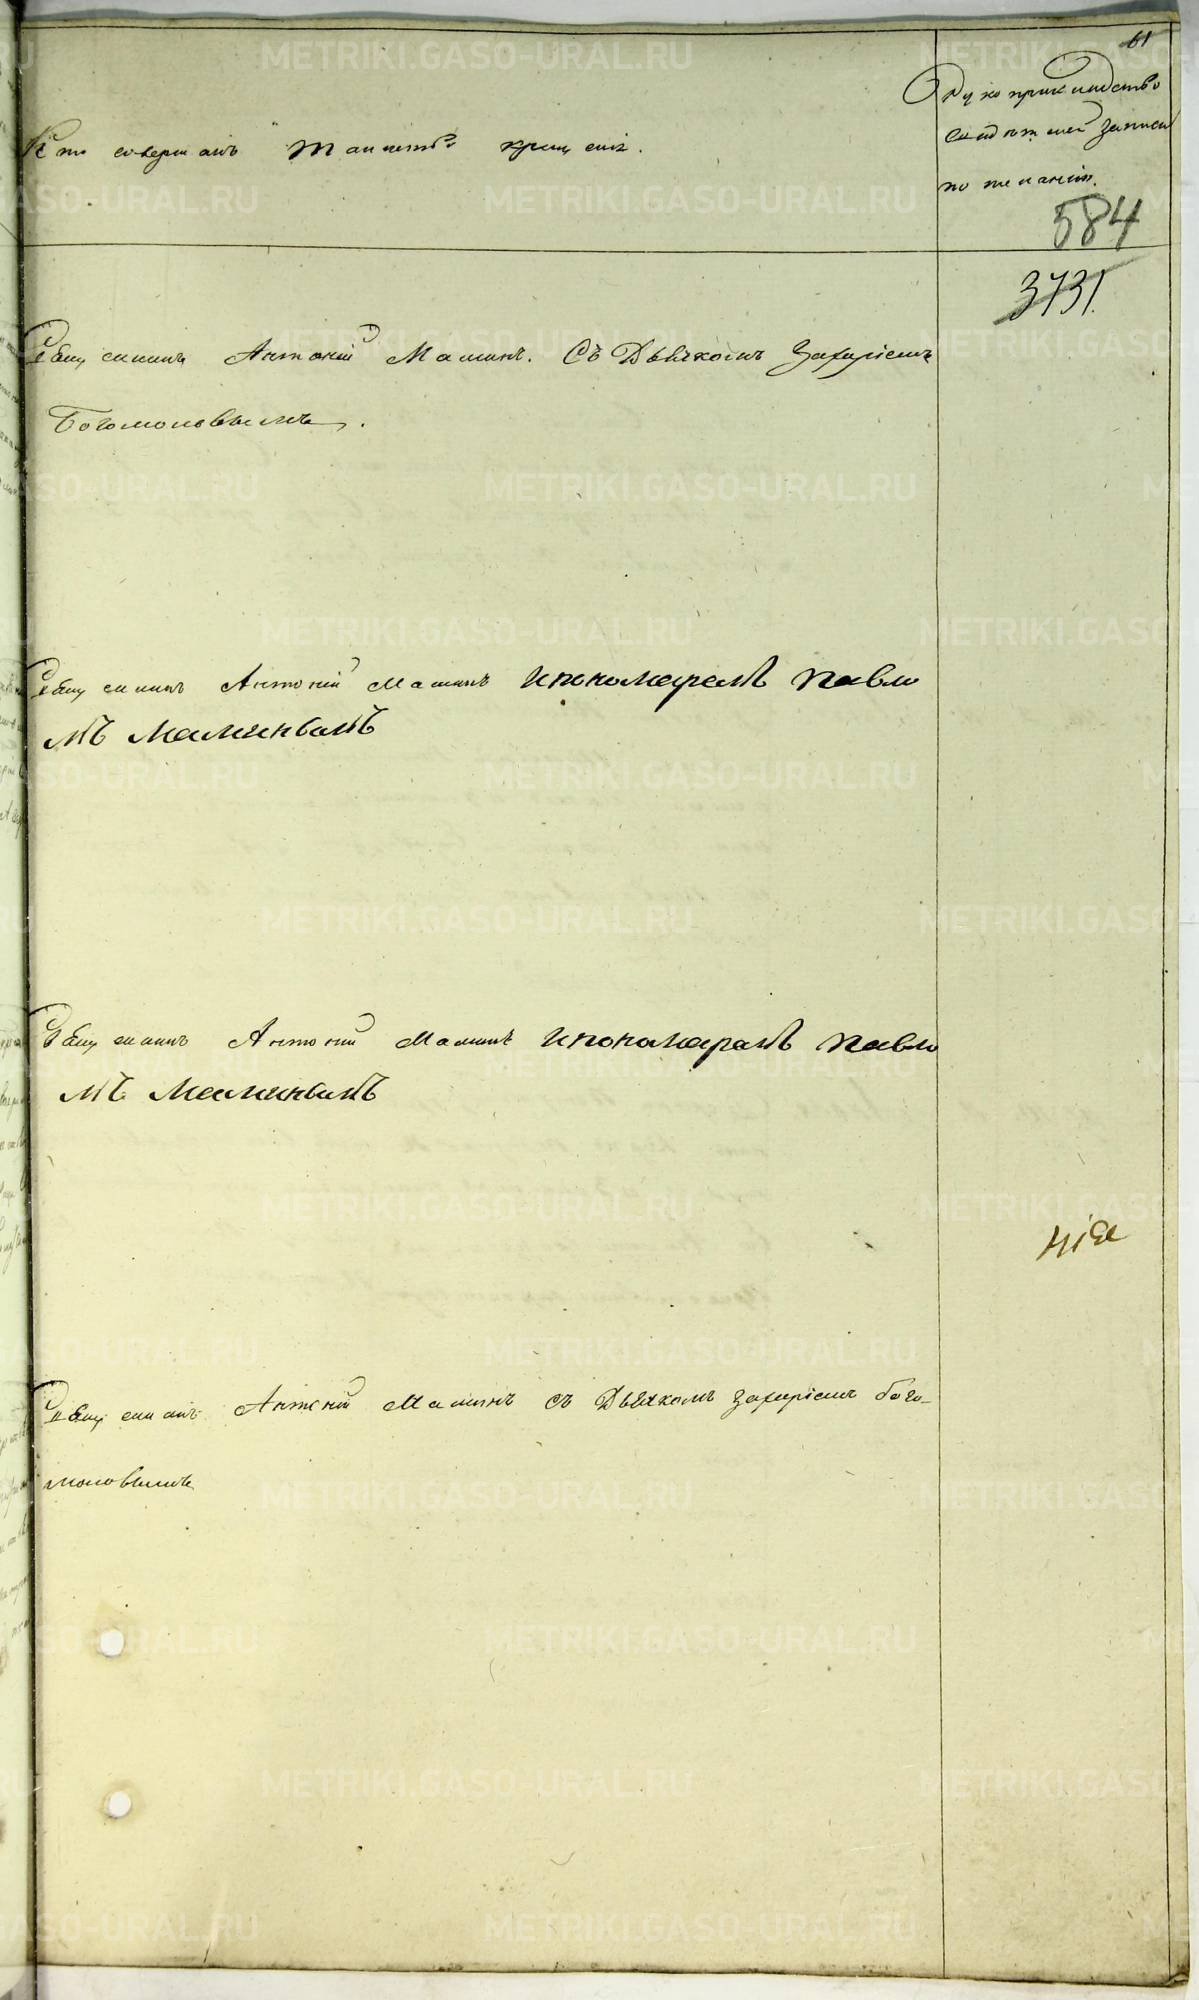 61
Кто совершалъ таинство крещенія.
Рукоприкладство
свидѣтелей записи
по желанію.
584
3731.
Священникъ Антоній Маминъ. Съ Дьячкомъ Захаріемъ
Богомоловымъ.
Священникъ Антоній Маминъ ипономаремъ Павло
мъ Маминымъ
Священникъ Антоній Маминъ ипономаремъ Павло
мъ Маминымъ
Священникъ Антоній Маминъ съ Дьячкомъ Захаріемъ Бого-
моловымъ
METRIKI.GASO-URAL.RU